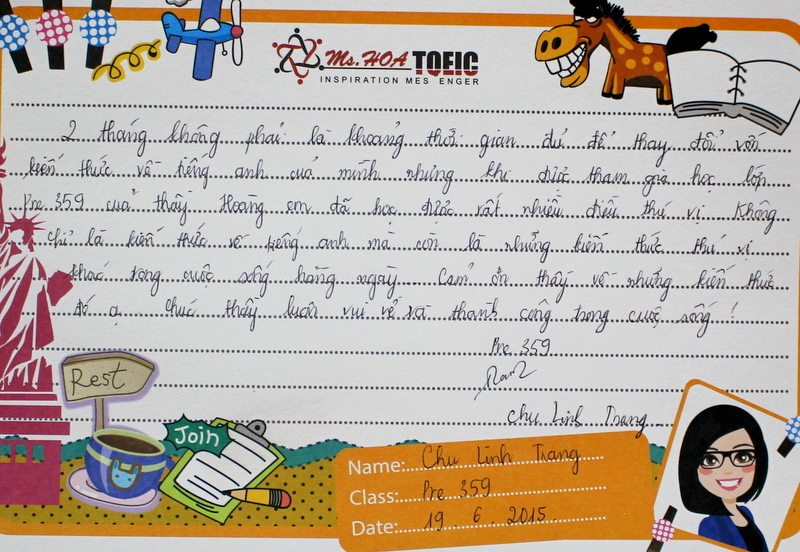 Ms.HOA TOEIC
INSPIRATION MES ENGER
2 tháng không phải là khoảng thời gian đủ để thay đổi vốn
kiến thức về tiếng anh của mình nhưng khi được tham gia học lớp
Pre 359 của thầy Hoàng em đã học được rất nhiều điều thú vị không
chỉ là kiến thức về tiếng anh mà còn là những kiến thức thú vị
khác trong cuộc sống hàng ngày. Cảm ơn thầy về những kiến thức
đó ạ. Chúc thầy luôn vui vẻ và thành công trong cuộc sống!
Pre 359
Chu Linh Trang
Rest
Join
Name: Chu Linh Trang
Class: Pre 359
Date: 19 6 2015